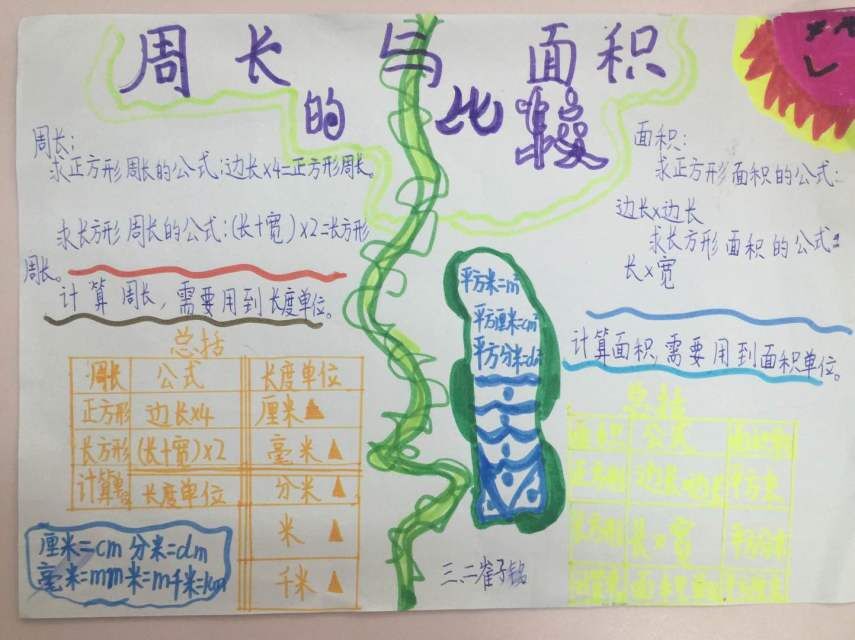 周长与面积
的比较
周长:
求正方形周长的公式:边长×4=正方形周长。
求长方形周长的公式:(长+宽)×2=长方形
周长。
计算周长,需要用到长度单位。
总结
周长 公式 长度单位
正方形 边长×4 厘米▲
长方形 (长+宽)×2 毫米▲
计算 长度单位 分米▲
米▲
千米▲
厘米=cm 分米=dm
毫米=mm 米=m 千米=km
平方米=m²
平方厘米=cm²
平方分米=dm²
三、二崔子铭
面积:
求正方形面积的公式:
边长×边长
求长方形面积的公式:
长×宽
计算面积,需要用到面积单位。
总结
面积 公式
正方形 边长×边长 平方米
长方形 长×宽 平方分米
面积单位 平方厘米